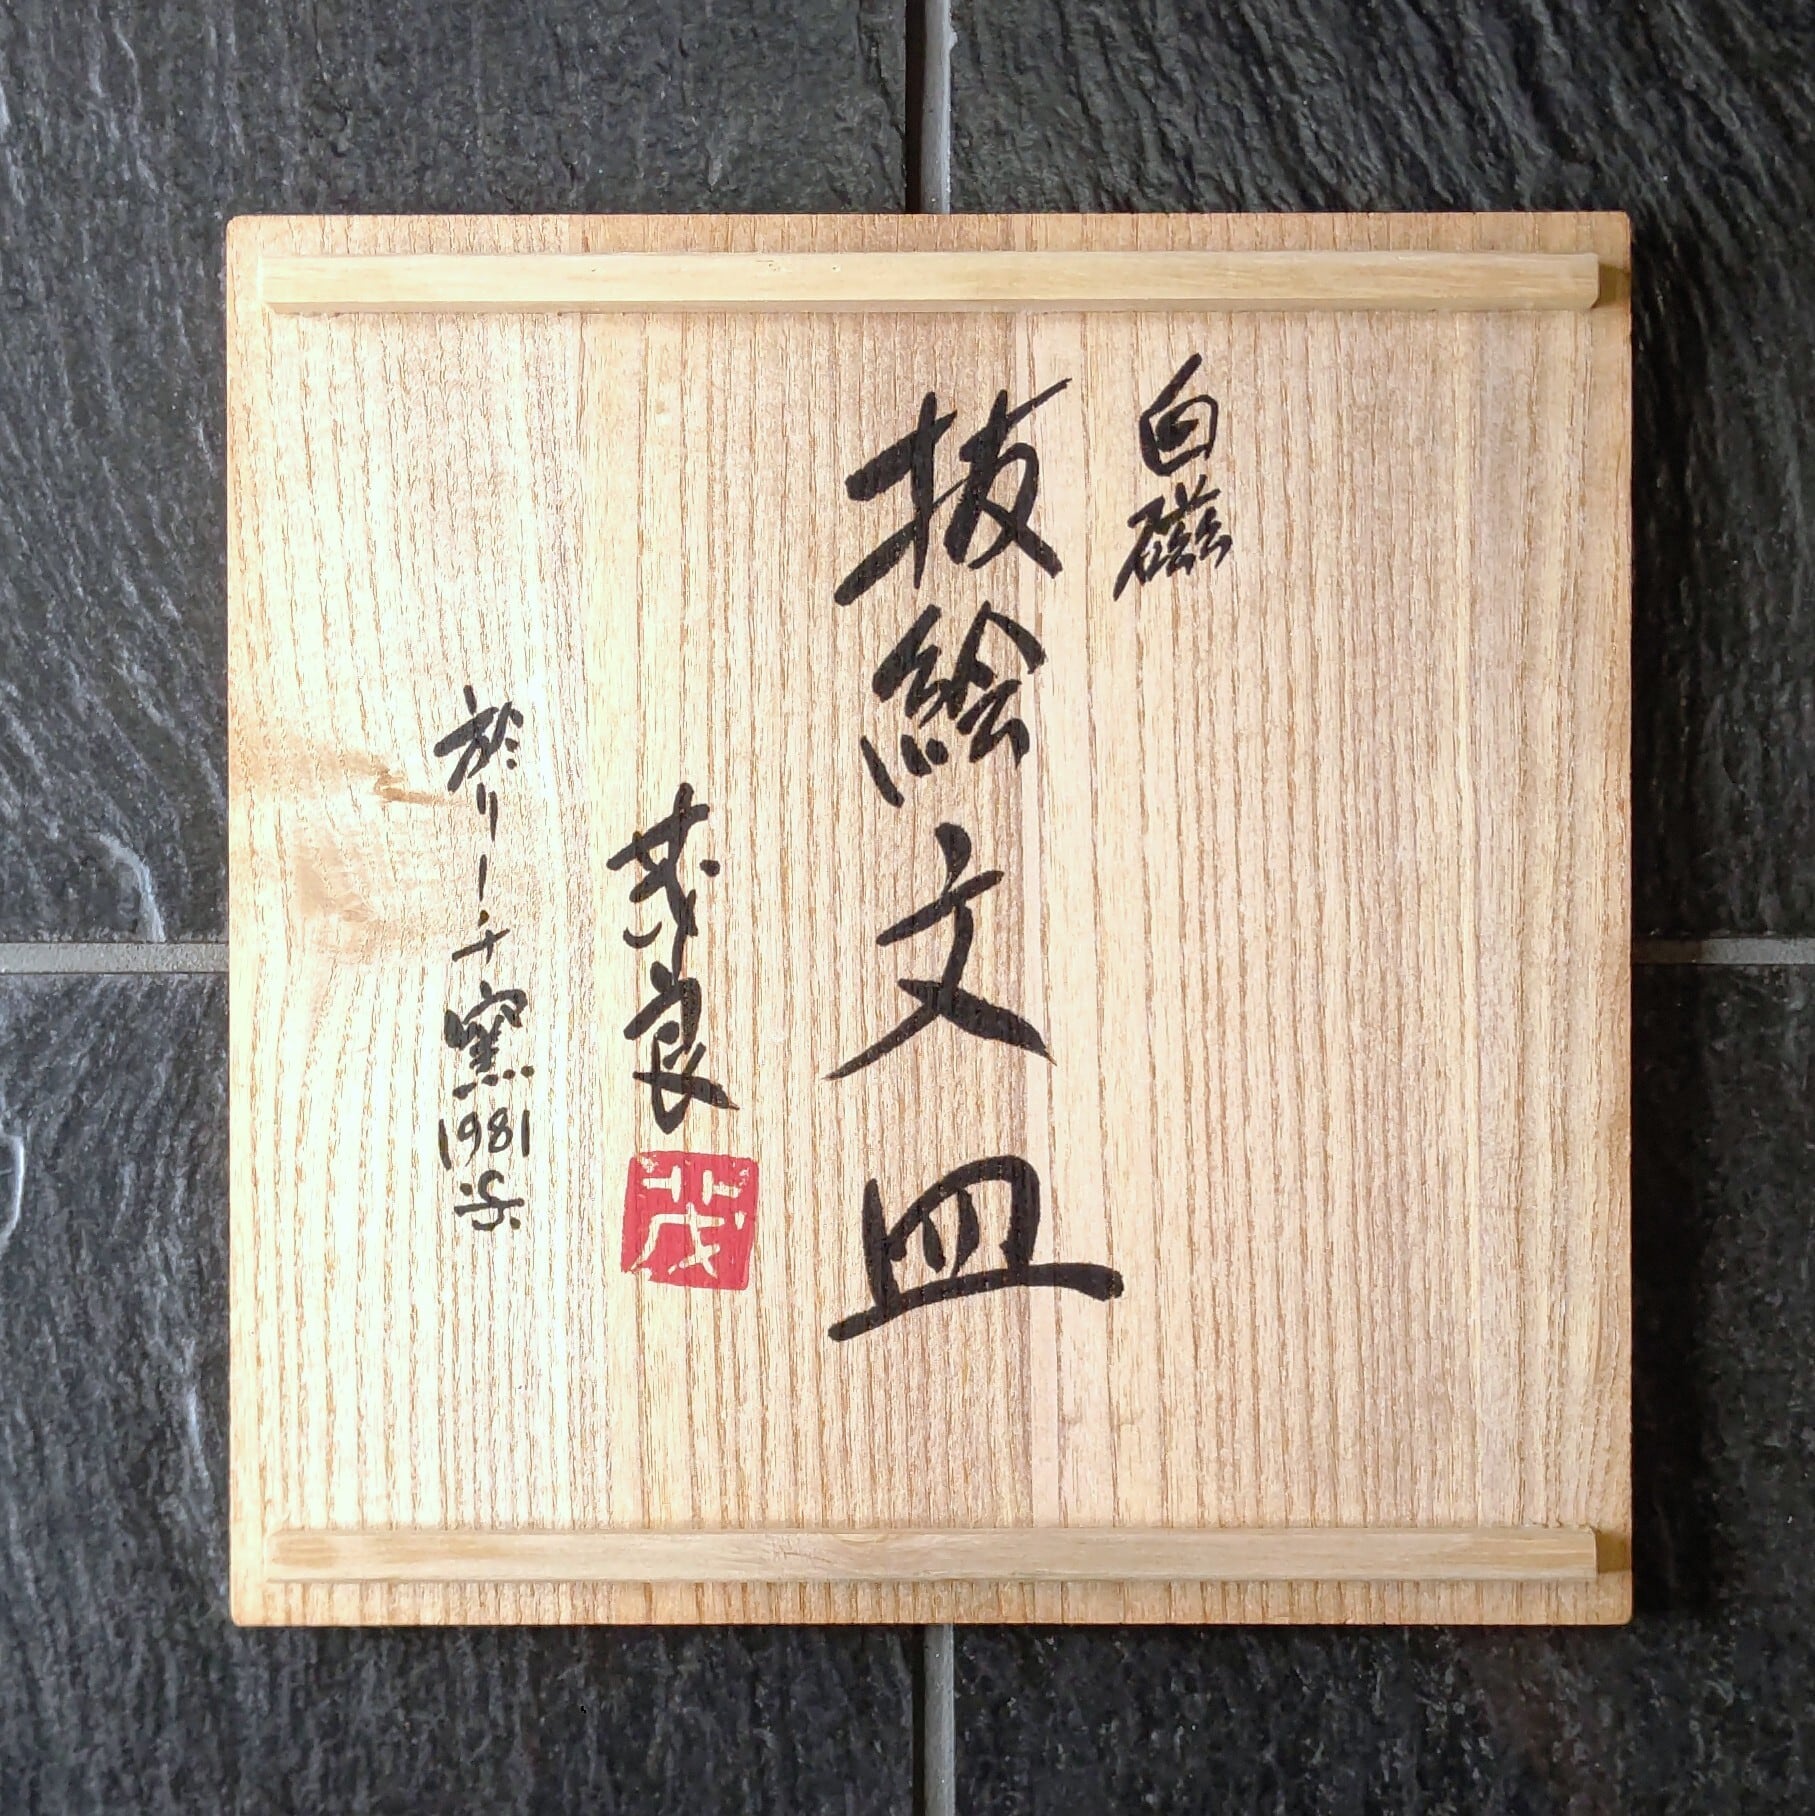 白磁
抜絵文皿
茂良
茂
於リーチ窯1981年